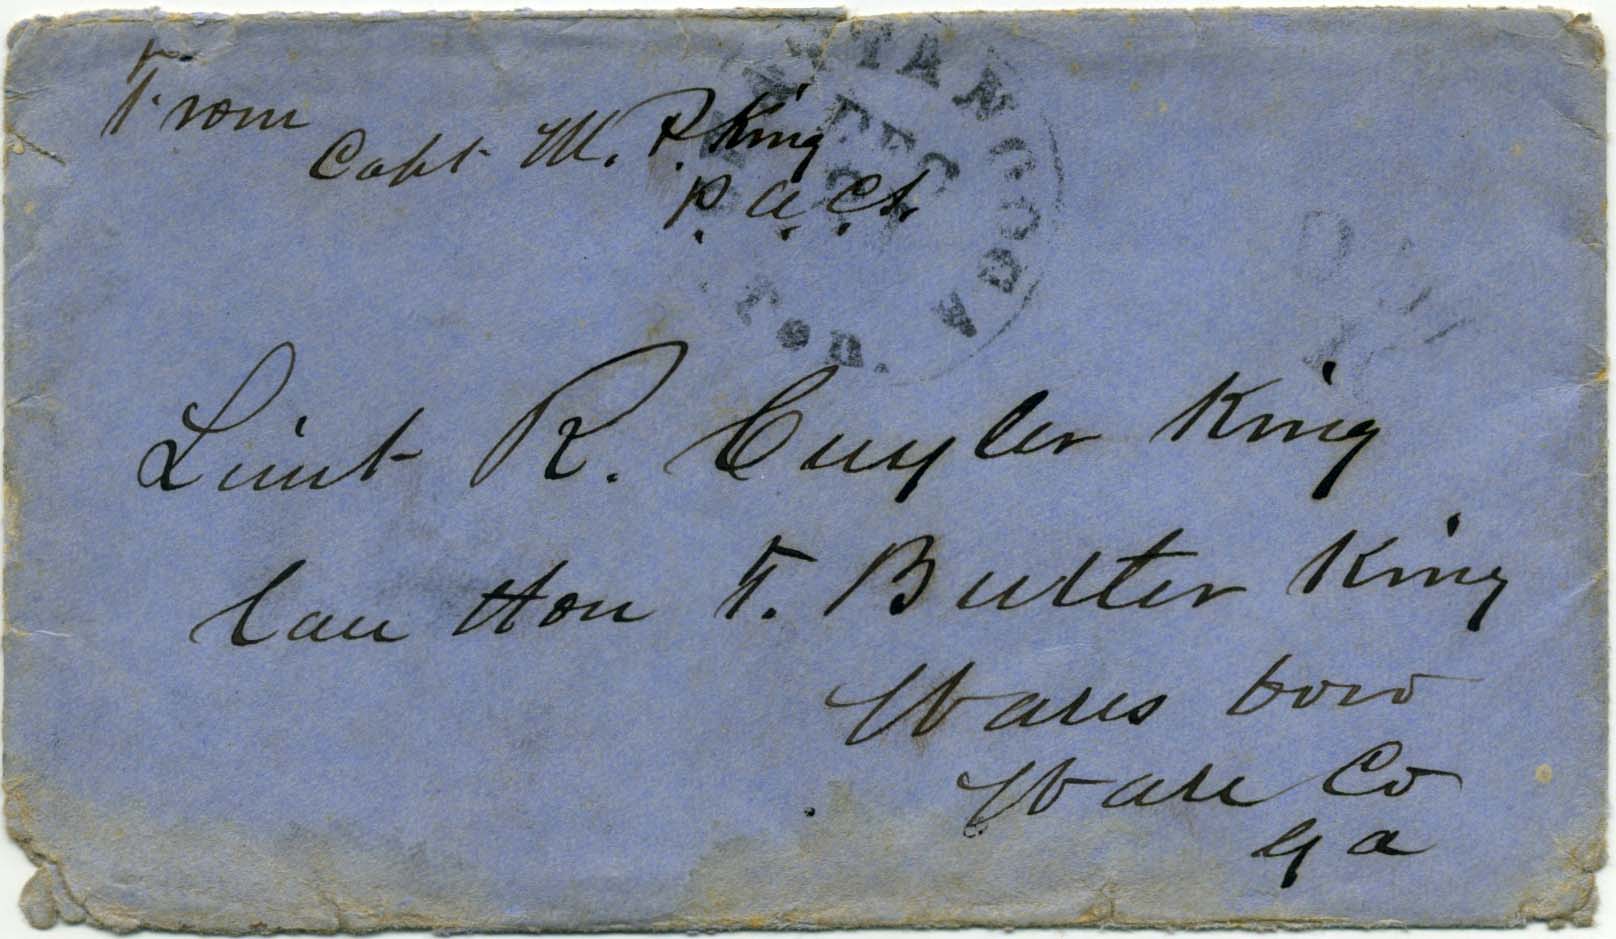 From
Capt M. P. King
P. A. C. S.
CHATTANOOGA
DEC
Ten.
Lieut R. Cuyler King
Care Hon T. Butler King
Wares boro
Ware Co
Ga